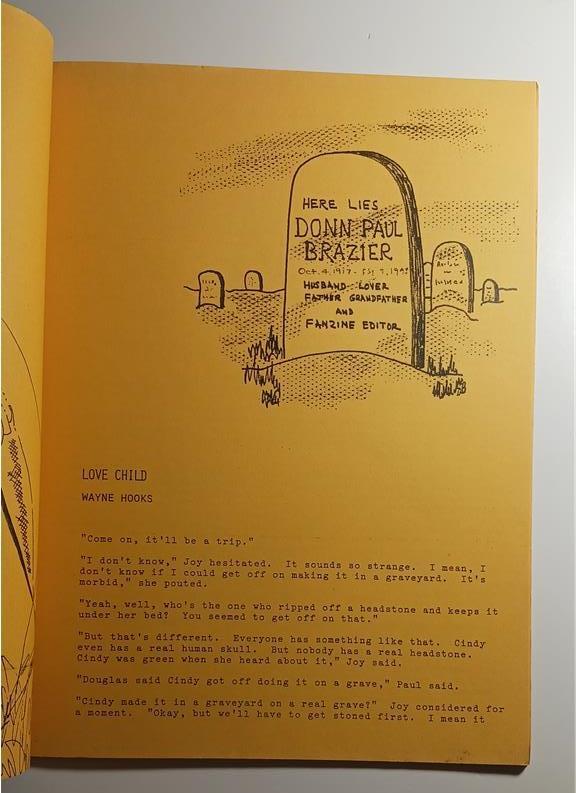 HERE LIES
DONN PAUL
BRAZIER
Oct. 4, 1917 -
HUSBAND LOVER
FATHER GRANDFATHER
AND
FANZINE EDITOR
LOVE CHILD
WAYNE HOOKS
"Come on, it'll be a trip."
"I don't know," Joy hesitated.  It sounds so strange.  I mean, I
don't know if I could get off on making it in a graveyard.  It's
morbid," she pouted.
"Yeah, well, who's the one who ripped off a headstone and keeps it
under her bed?  You seemed to get off on that."
"But that's different.  Everyone has something like that.  Cindy
even has a real human skull.  But nobody has a real headstone.
Cindy was green when she heard about it," Joy said.
"Douglas said Cindy got off doing it on a grave," Paul said.
"Cindy made it in a graveyard on a real grave?"  Joy considered for
a moment.  "Okay, but we'll have to get stoned first.  I mean it